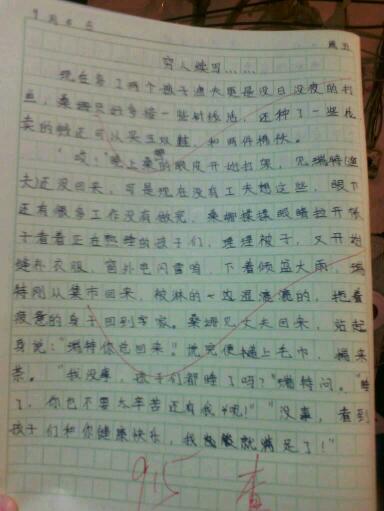 周五
穷人续写……
现在多了两个孩子渔夫更是没日没夜的打
鱼，桑姆只好多接一些针线活，还种了一些
卖的钱还可以买豆双鞋，和两件棉袄。
"哎："晚上桑的眼皮开始打架，见瑞特(渔
夫)还没回来，可是现在没有工夫想这些，眼下
还有很多工作没有做完，桑娜揉揉眼睛拉开帐
子看着正在熟睡的孩子们，埋埋被子，又开始
缝补衣服，窗外电闪雷鸣，下着倾盆大雨，瑞
特刚从集市回来，被淋的一边湿漉漉的，拖着
疲惫的身子回到字家。桑姆见丈夫回来，站起
身说："瑞特你总回来。"说完便插上毛巾，端来
茶。"我没事，孩子们都睡了吗？"瑞特问。"睡
了，你也不要太辛苦还有我呢！""没事，看到
孩子们和你健康快乐，我就满足了！"
查